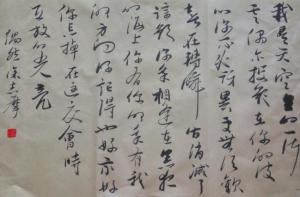 我是天空里的一片
云偶尔投影在你的波
心你不必讶异更无须欢
喜在转瞬间消灭了
踪影你我相逢在黑夜
的海上你有你的我有我
的方向你记得也好最好
你忘掉在这交会时
互放的光亮
偶然徐志摩